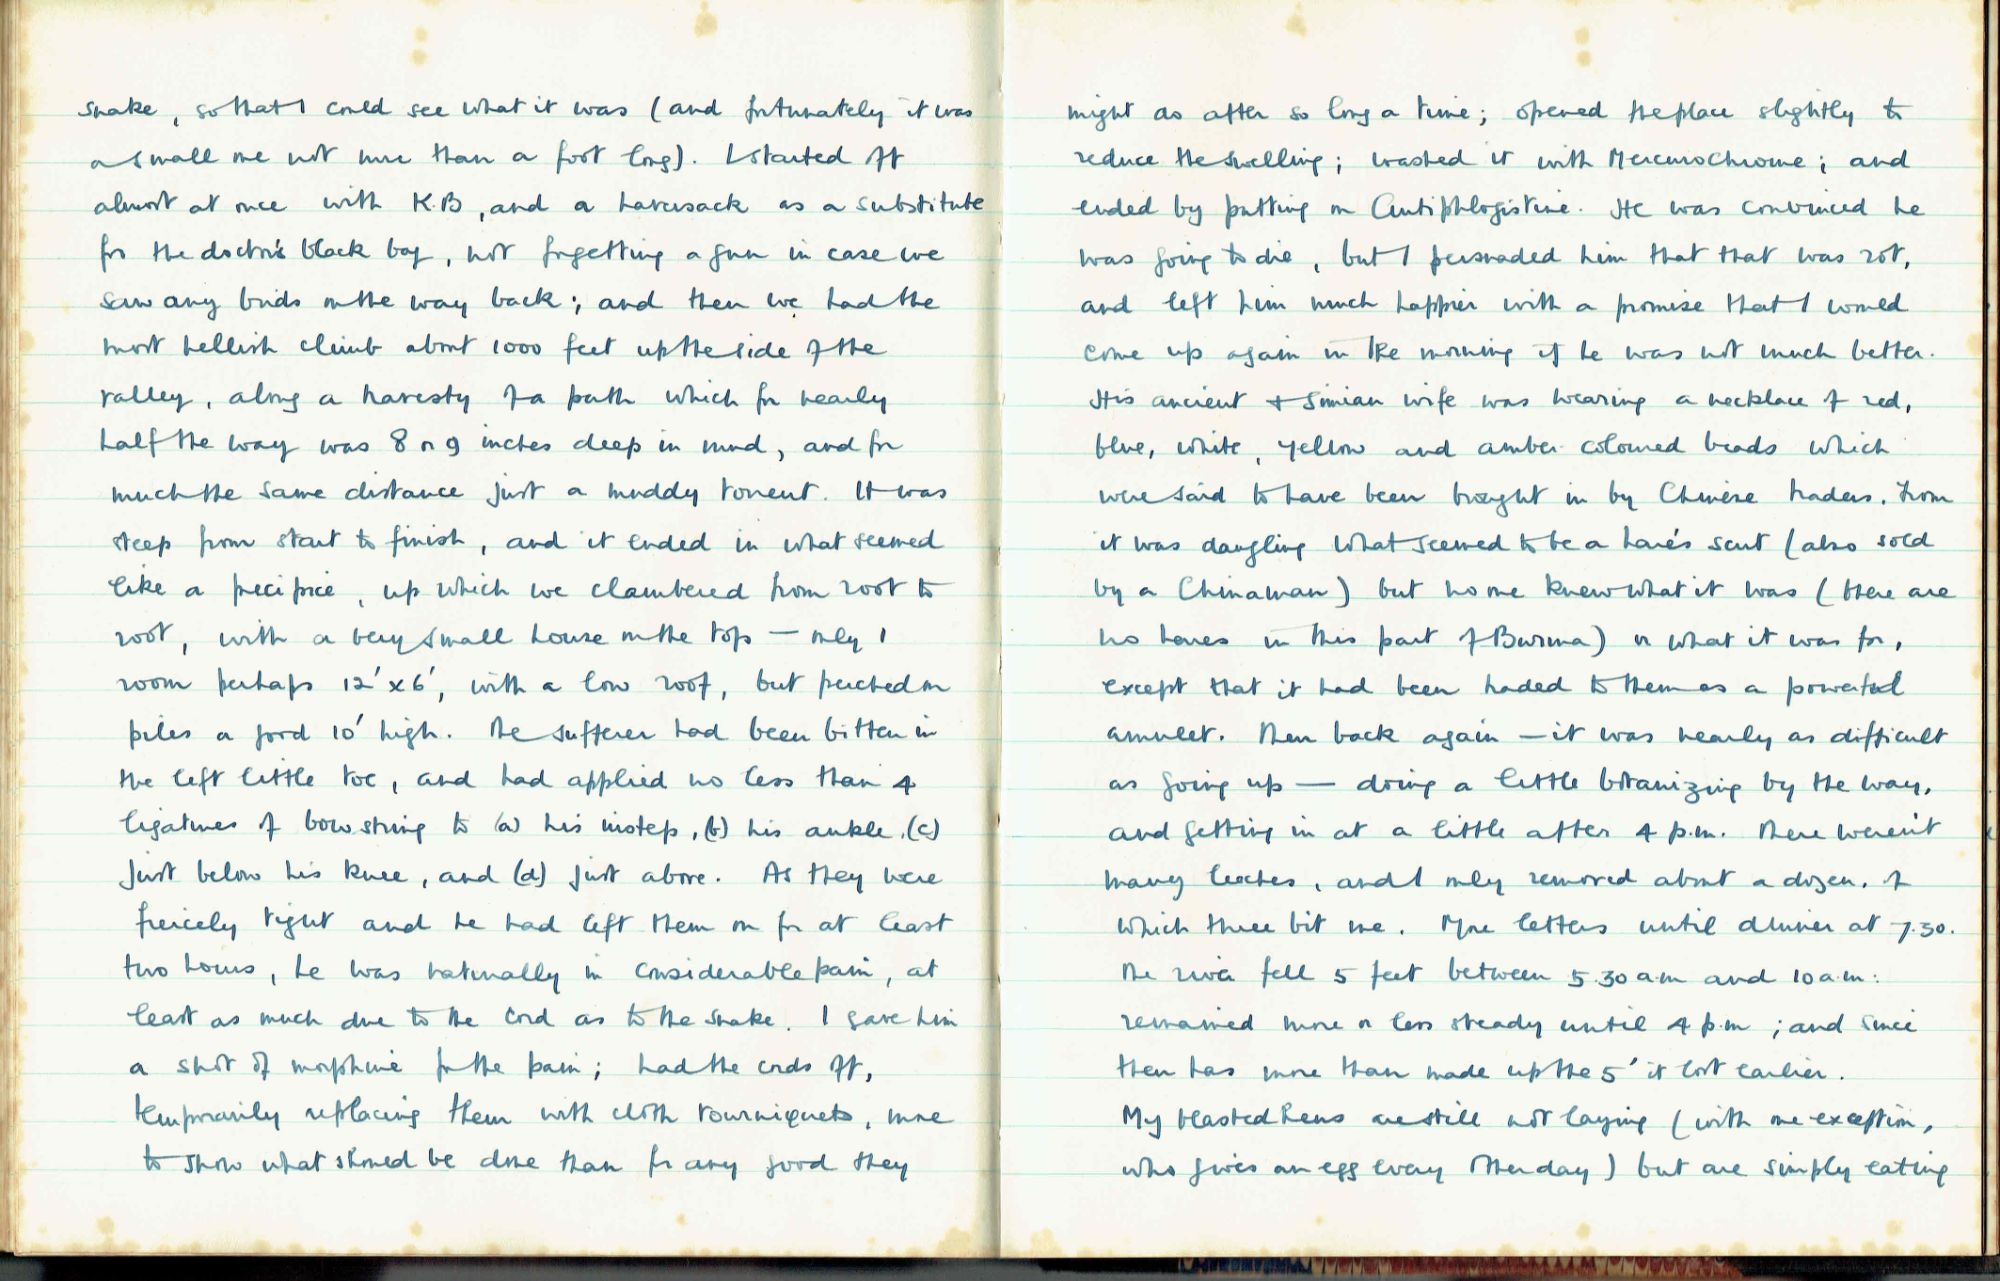 snake, so that I could see what it was (and fortunately it was
a small one not more than a foot long). I started off
almost at once with K.B, and a haversack as a substitute
for the doctor's black bag, not forgetting a gun in case we
saw any birds on the way back; and then we had the
most hellish climb about 1000 feet up the side of the
valley, along a travesty of a path which for nearly
half the way was 8 or 9 inches deep in mud, and for
much the same distance just a muddy torrent. It was
steep from start to finish, and it ended in what seemed
like a precipice, up which we clambered from root to
root, with a very small house on the top — only 1
room perhaps 12' x 6', with a low roof, but perched on
piles a good 10' high. The sufferer had been bitten in
the left little toe, and had applied no less than 4
ligatures of bowstring to (a) his instep, (b) his ankle, (c)
just below his knee, and (d) just above. As they were
fiercely tight and he had left them on for at least
two hours, he was naturally in considerable pain, at
least as much due to the cord as to the snake. I gave him
a shot of morphine for the pain; had the cords off,
temporarily replacing them with cloth tourniquets, more
to show what should be done than for any good they
might do after so long a time; opened the place slightly to
reduce the swelling; washed it with Mercurochrome; and
ended by putting on Antiphlogistine. He was convinced he
was going to die, but I persuaded him that that was rot,
and left him much happier with a promise that I would
come up again in the morning if he was not much better.
His ancient & simian wife was wearing a necklace of red,
blue, white, yellow and amber coloured beads which
were said to have been brought in by Chinese traders. From
it was dangling what seemed to be a hare's scut (also sold
by a Chinaman) but no one knew what it was (there are
no hares in this part of Burma) or what it was for,
except that it had been traded to them as a powerful
amulet. Then back again — it was nearly as difficult
as going up — doing a little botanizing by the way,
and getting in at a little after 4 p.m. There weren't
many leeches, and I only removed about a dozen, of
which three bit me. More letters until dinner at 7.30.
The river fell 5 feet between 5.30 a.m and 10 a.m:
remained more or less steady until 4 p.m; and since
then has more than made up the 5' it lost earlier.
My blasted hens are still not laying (with one exception,
who gives an egg every other day) but are simply eating